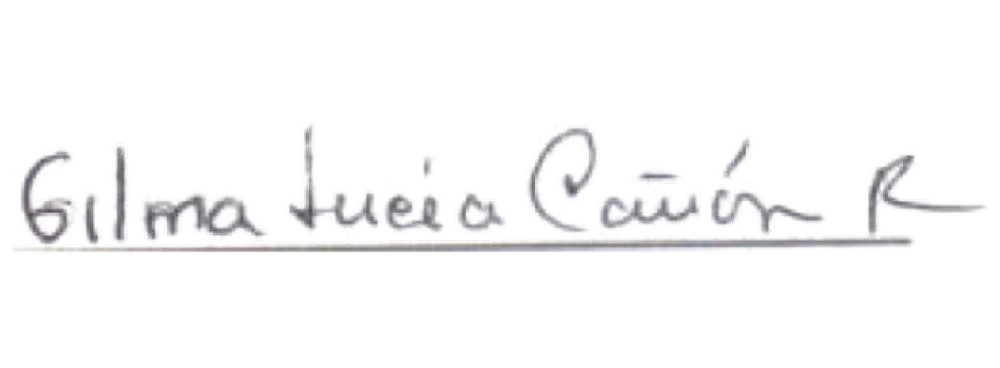 Gilma Lucía Cañón R